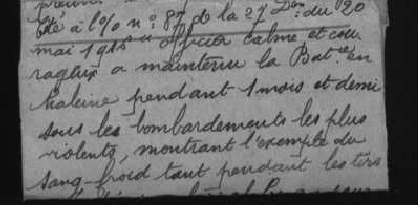 Cité à l'o/o n° 87 de la 27 Don du 20
mai 1915 officier calme et cou
rageux a maintenu la Batie en
haleine pendant 1 mois et demi
sous les bombardements les plus
violents, montrant l'exemple du
sang-froid tant pendant les tirs